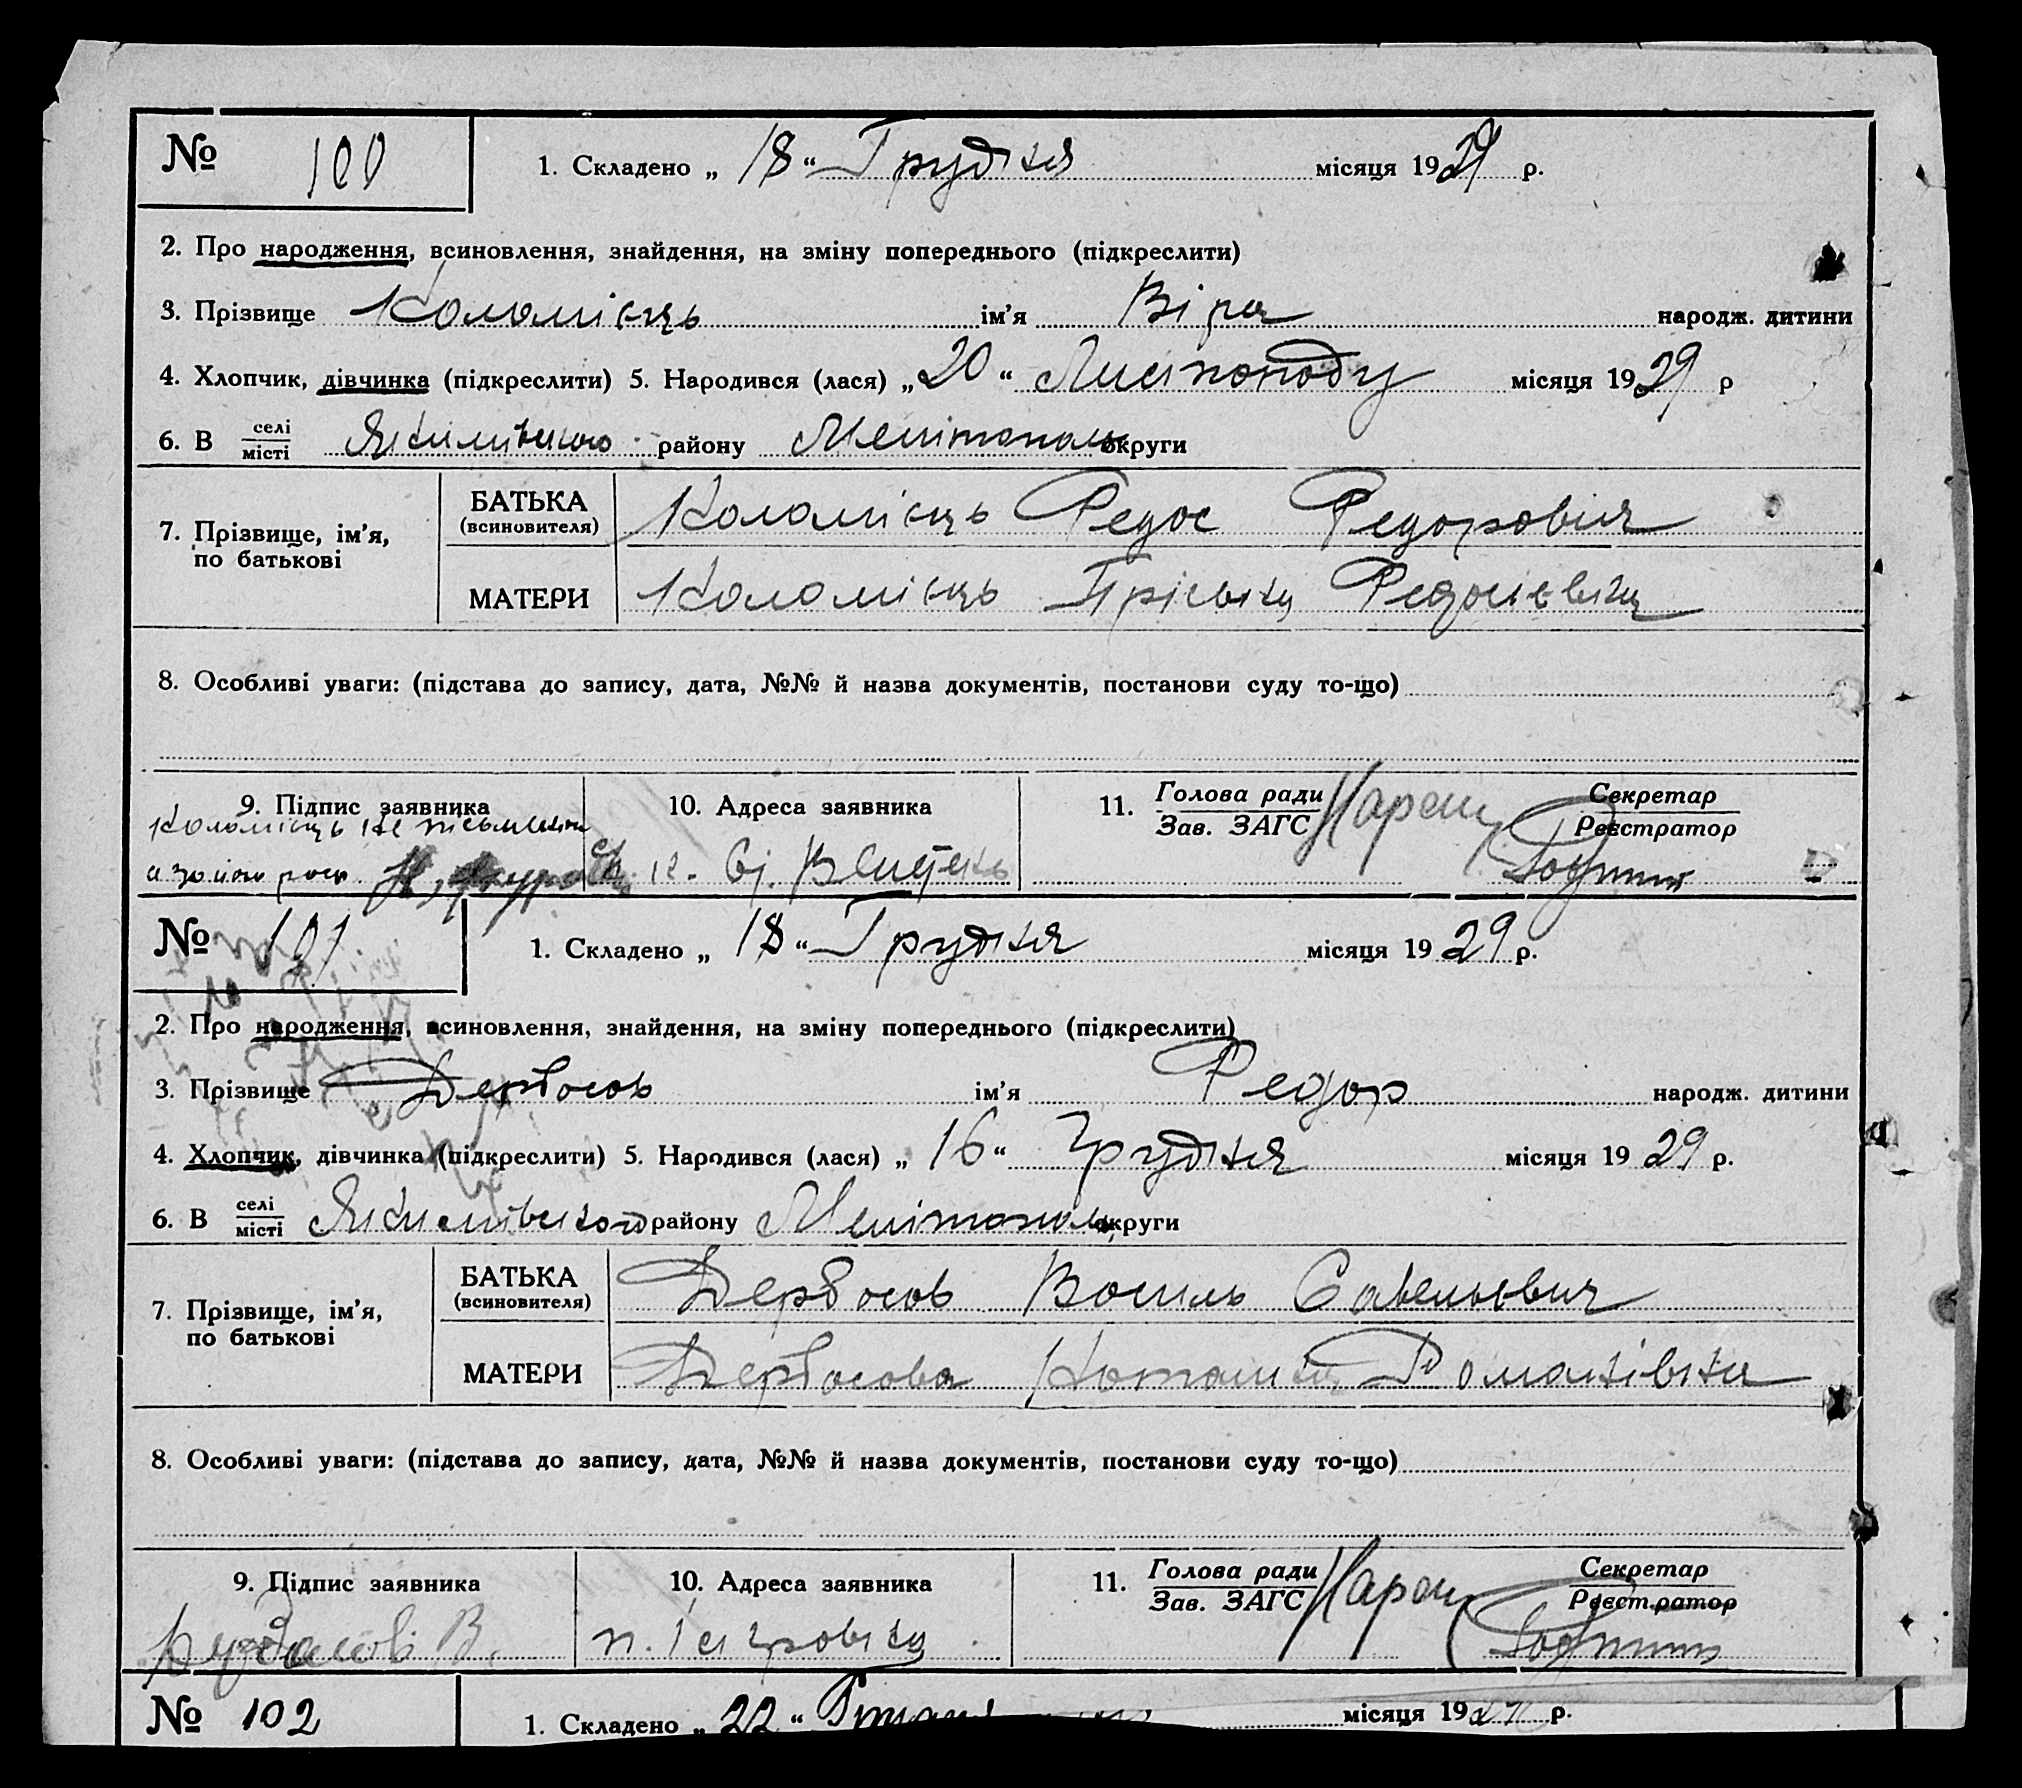 № 100 1. Складено „ 18 “ Грудня місяця 1929 р.
2. Про народження, всиновлення, знайдення, на зміну попереднього (підкреслити)
3. Прізвище Коломієць ім’я Віра народж. дитини
4. Хлопчик, дівчинка (підкреслити) 5. Народився (лася) „ 20 “ Листопаду місяця 1929 р
6. В селі
місті Якимівського району Мелітополь округи
7. Прізвище, ім’я, по батькові
БАТЬКА (всиновителя) Коломієць Федос Федорович
МАТЕРИ Коломієць Пріська Федосієвна
8. Особливі уваги: (підстава до запису, дата, №№ й назва документів, постанови суду то-що)
9. Підпис заявника 10. Адреса заявника 11. Голова ради
Зав. ЗАГС Секретар
Реєстратор
Коломієць не письменна
а за його росп
№ 101 1. Складено „ 18 “ Грудня місяця 19 29 р.
2. Про народження, всиновлення, знайдення, на зміну попереднього (підкреслити)
3. Прізвище Дербасов ім’я Федор народж. дитини
4. Хлопчик, дівчинка (підкреслити) 5. Народився (лася) „ 16 “ Грудня місяця 19 29 р.
6. В селі
місті Якимівського району Мелітополь округи
7. Прізвище, ім’я, по батькові
БАТЬКА (всиновителя) Дербасов Василь Савельевич
МАТЕРИ Дербасова Наталка Романівна
8. Особливі уваги: (підстава до запису, дата, №№ й назва документів, постанови суду то-що)
9. Підпис заявника 10. Адреса заявника 11. Голова ради
Зав. ЗАГС Секретар
Реєстратор
В.
№ 102 1. Складено „ 22 “ місяця 19 р.